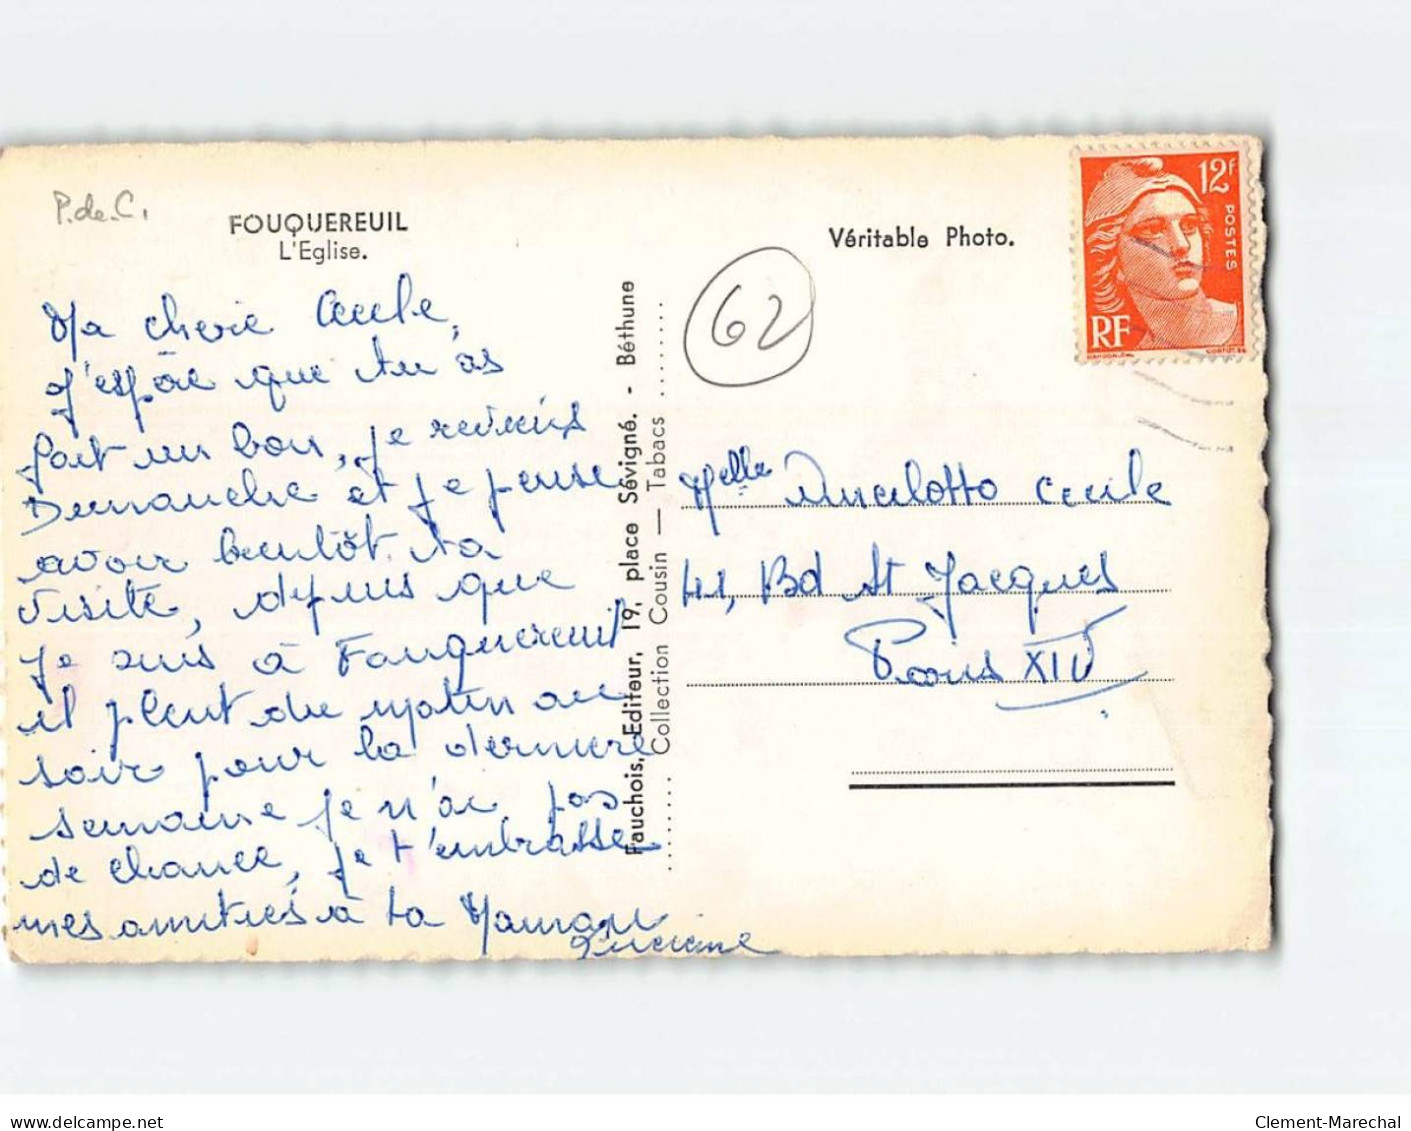 P. de. C.
FOUQUEREUIL
L'Eglise.
Ma cherie Cecile,
j'espère que tu as
fait un bon, je reviens
Dimanche et je pense
avoir bientôt ta
visite, depuis que
je suis à Fouquereuil
il pleut du matin au
soir pour la derniere
semaine je n'ai pas
de chance, je t'embrasse
mes amitiés à ta Maman
Lucienne
Fauchois, Editeur, 19, place Sévigné. - Béthune
........ Collection Cousin — Tabacs ........
Véritable Photo.
62
12F
POSTES
RF
Melle Ancelotto Cecile
41, Bd St Jacques
Paris XIV
delcampe.net
Clement-Marechal